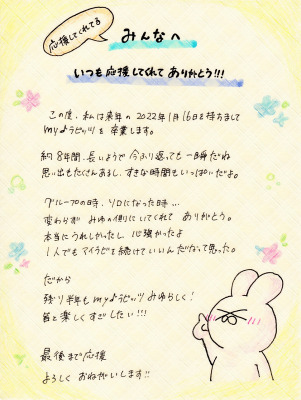 応援してくれてる
みんなへ
いつも応援してくれて ありがとう!!!
この度、私は来年の2022年1月16日を持ちまして
myようラビッツ を 卒業します。
約8年間、長いようで 今ふり返っても 一瞬だね
思い出もたくさんあるし、すきな時間もいっぱいだよ。
グループの時、ソロになった時…
変わらず みゆの側にいてくれて ありがとう。
本当にうれしかったし、心強かったよ
1人でもマイラビを続けていいんだなって思った。
だから
残り半年も myようラビッツ みゆらしく!
皆と楽しくすごしたい!!!
最後まで応援
よろしく おねがいします!!